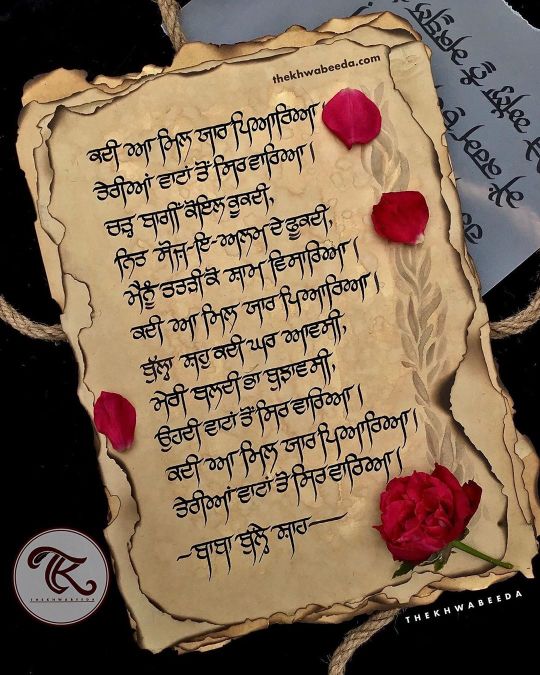 thekhwabeeda.com
ਕਦੀ ਆ ਮਿਲ ਯਾਰ ਪਿਆਰਿਆ।
ਤੇਰੀਆਂ ਵਾਟਾਂ ਤੋਂ ਸਿਰ ਵਾਰਿਆ।
ਚੜ੍ਹ ਬਾਗੀਂ ਕੋਇਲ ਕੂਕਦੀ,
ਨਿਤ ਸੋਜ਼-ਇ-ਅਲਮ ਦੇ ਫੂਕਦੀ,
ਮੈਨੂੰ ਤਤੜੀ ਕੋ ਸ਼ਾਮ ਵਿਸਾਰਿਆ।
ਕਦੀ ਆ ਮਿਲ ਯਾਰ ਪਿਆਰਿਆ।
ਬੁੱਲ੍ਹਾ ਸ਼ਹੁ ਕਦੀ ਘਰ ਆਵਸੀ,
ਮੇਰੀ ਬਲਦੀ ਭਾ ਬੁਝਾਵਸੀ,
ਉਹਦੀ ਵਾਟਾਂ ਤੋਂ ਸਿਰ ਵਾਰਿਆ।
ਕਦੀ ਆ ਮਿਲ ਯਾਰ ਪਿਆਰਿਆ।
ਤੇਰੀਆਂ ਵਾਟਾਂ ਤੋਂ ਸਿਰ ਵਾਰਿਆ।
-ਬਾਬਾ ਬੁੱਲ੍ਹੇ ਸ਼ਾਹ-
TK
THEKHWABEEDA
THEKHWABEEDA